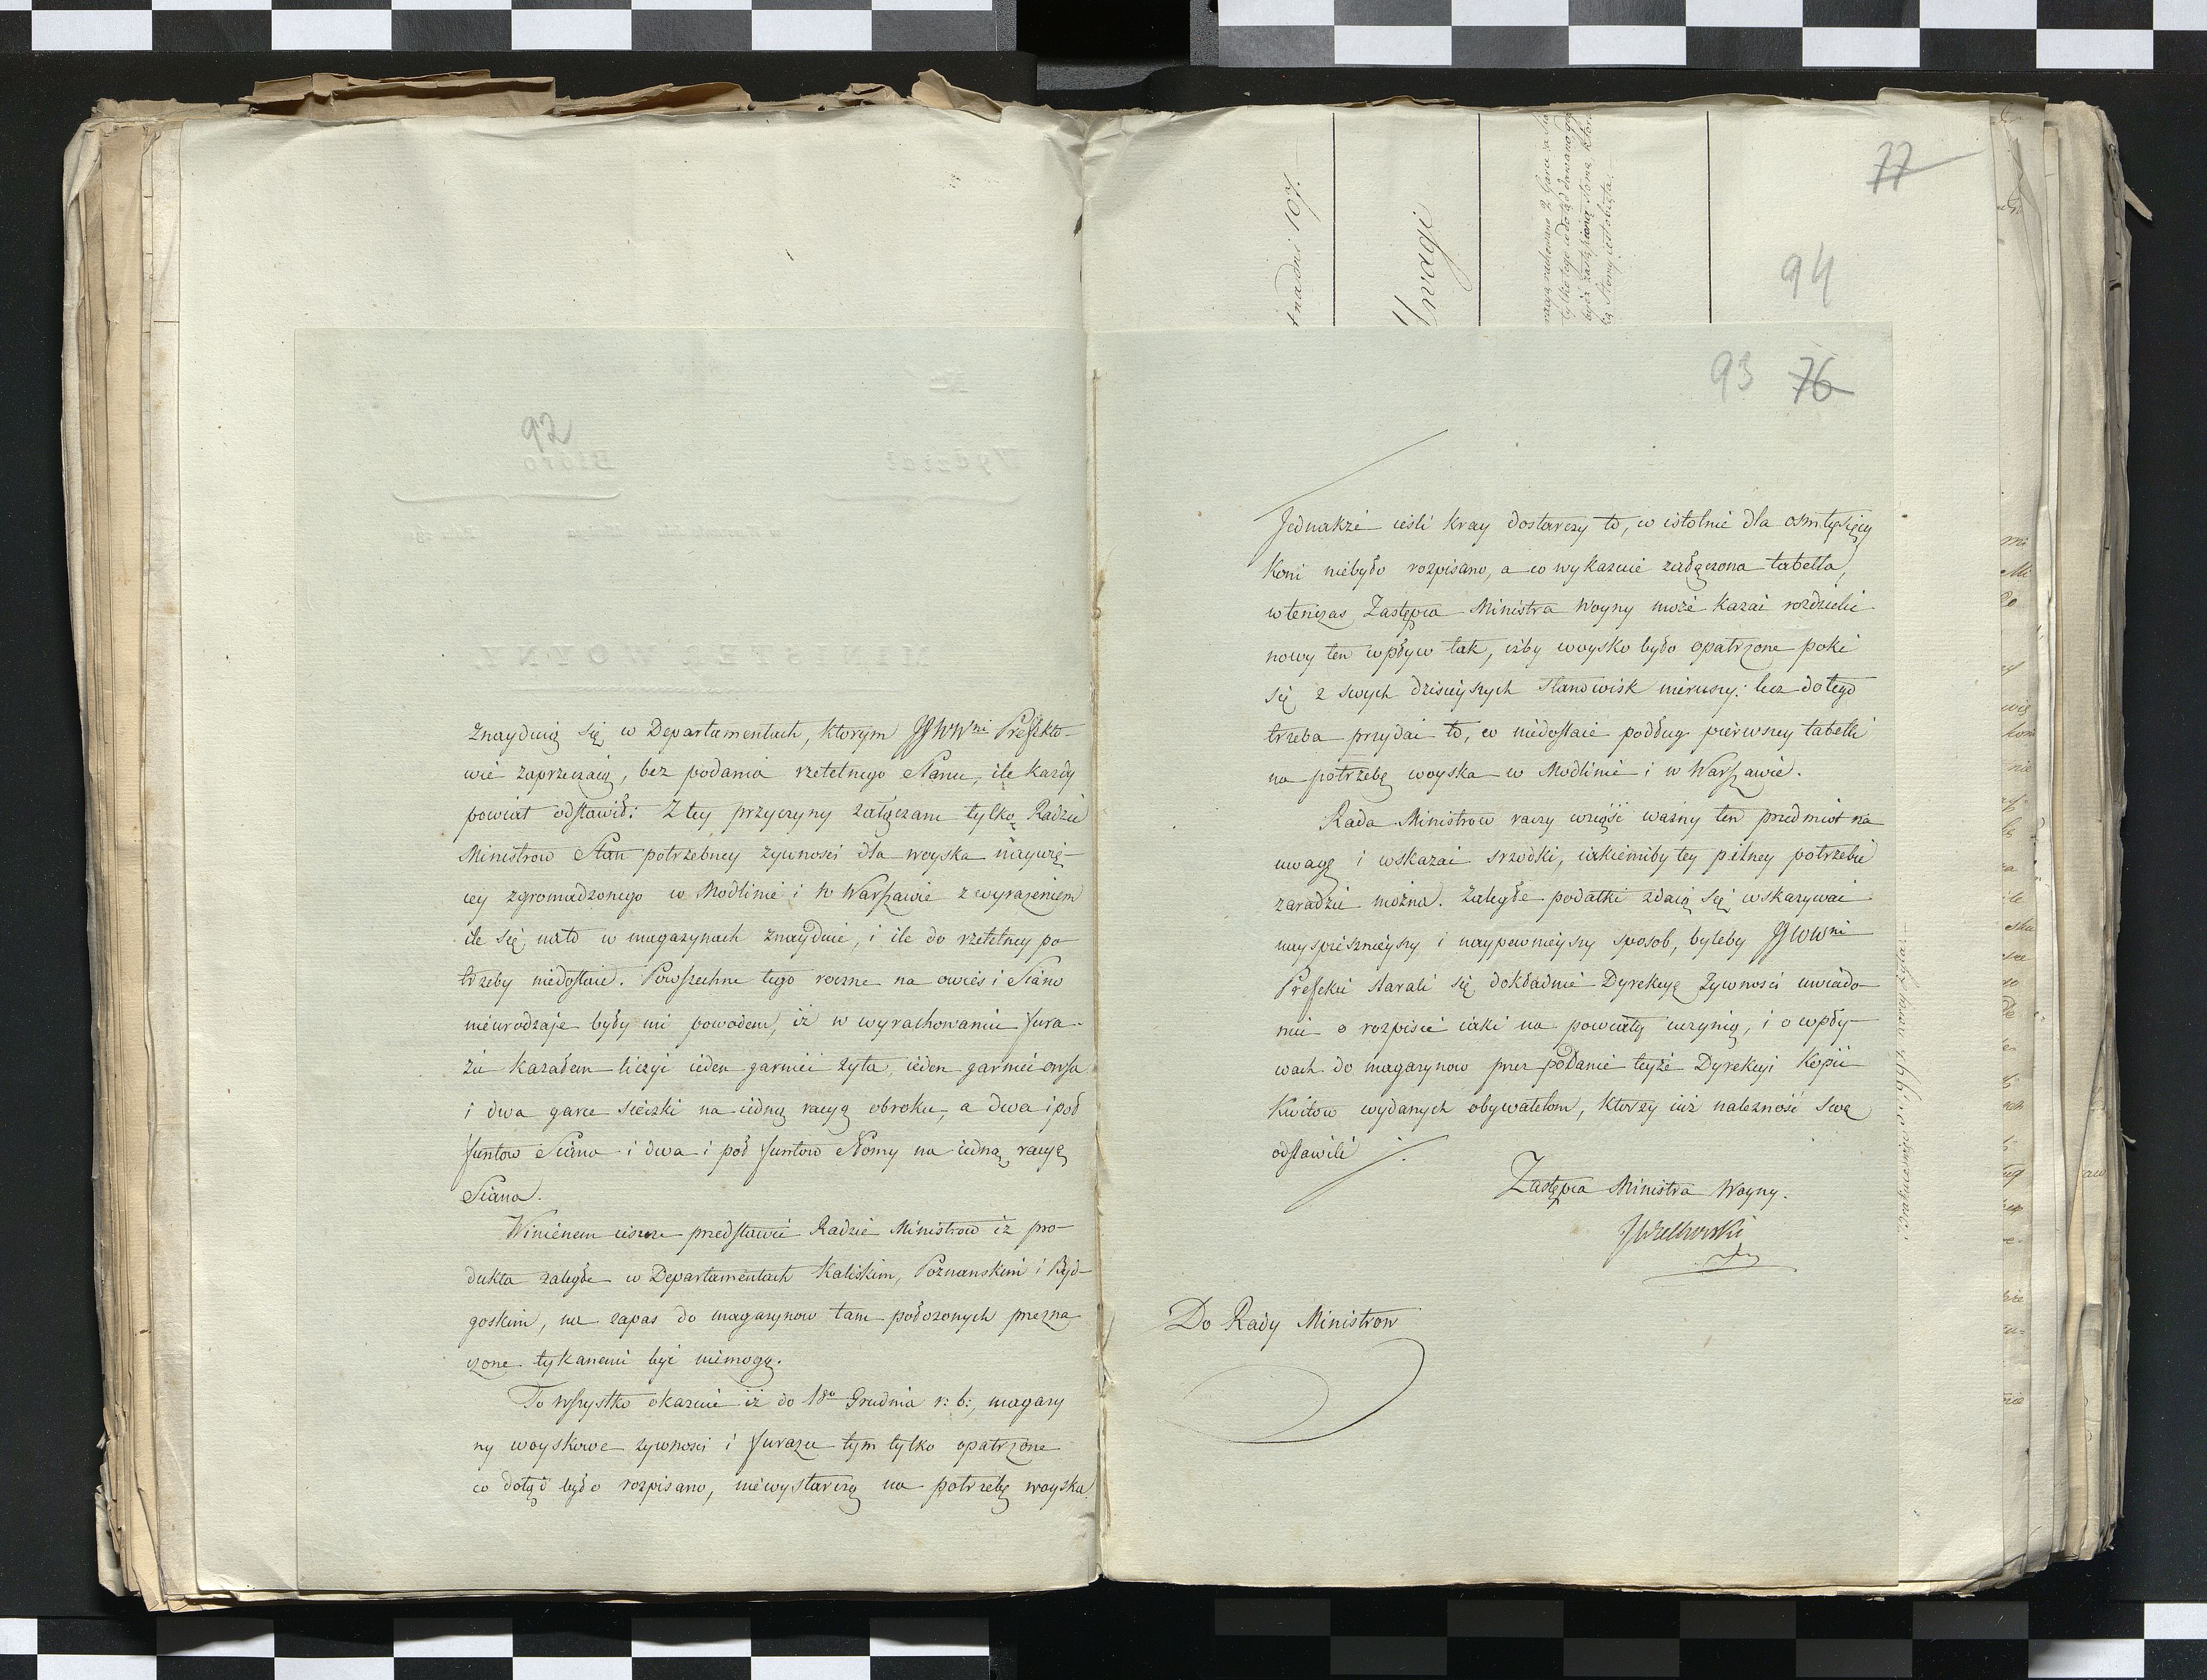 92
znayduią się w Departamentach, ktorym JJWWni Prefekto-
wie zaprzeczaią, bez podania rzetelnego Stanu, ile każdy
powiat odstawił: Z tey przyczyny załączam tylko Radzie
Ministrow Stan potrzebney żywnosci dla woyska naywię-
cey zgromadzonego w Modlinie i w Warszawie z wyrażeniem
ile się na to w magazynach znayduie, i ile do rzetelney po-
trzeby niedostaie. Powszechne tego roczne na owies i Siano
nieurodzaje były mi powodem, iż w wyrachowaniu fura-
żu kazałem liczyć ieden garniec żyta, ieden garniec owsa
i dwa garce sieczki na iedną racyą obroku, a dwa i poł
funtow Siana i dwa i poł funtow Słomy na iedną racyę
Siana.
Winienem ieszcze przedstawić Radzie Ministrow iż pro-
dukta zaległe w Departamentach Kaliskim, Poznanskim i Byd-
goskim, na zapas do magazynow tam położonych przezna-
czone tykanemi być niemogą.
To wszystko okazuie iż do 1go Grudnia r: b:, magazy
ny woyskowe żywnosci i furażu tym tylko opatrzone
co dotąd było rozpisano, niewystarczą na potrzebę woyska
77
94
Uwagi
93 76
Jednakże ieśli kray dostarczy to, co istotnie dla osmtysięcy
Koni niebyło rozpisano, a co wykazuie załączona tabella,
wtenczas Zastępca Ministra Woyny może kazać rozdzielić
nowy ten wpływ tak, iżby woysko było opatrzone poki
się z swych dzisieyszych stanowisk nieruszy: lecz do tego
trzeba przydać to, co niedostaie podług pierwszey tabelli
na potrzebę woyska w Modlinie i w Warszawie.
Rada Ministrow raczy wziąść ważny ten przedmiot na
uwagę i wskazać srzodki, iakiemiby tey pilney potrzebie
zaradzić można. Zaległe podatki zdaią się wskazywać
nayspiesznieyszy i naypewnieyszy sposob, byleby JJWWni
Prefekci starali się dokładnie Dyrekcyę Żywnosci uwiado-
mić o rozpisie iaki na powiaty uczynią, i o wpły-
wach do magazynow przez podanie teyże Dyrekcyi Kopii
Kwitow wydanych obywatelom, ktorzy iuż należność swą
odstawili
Zastępca Ministra Woyny.
JWielhorski
Do Rady Ministrow